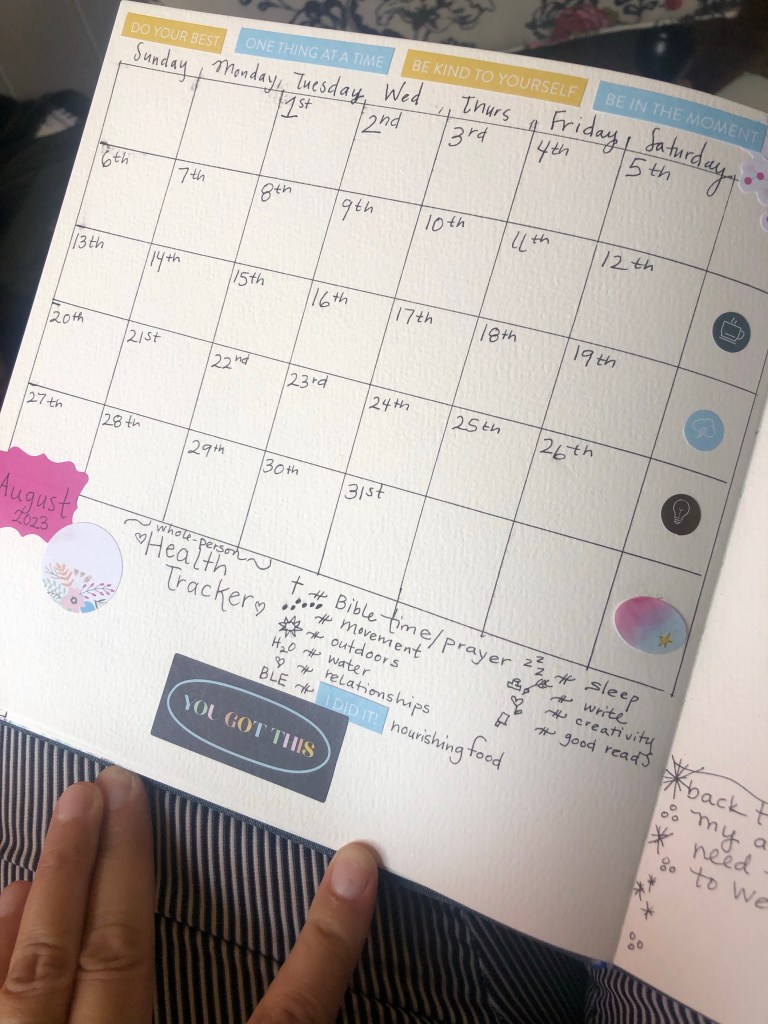 DO YOUR BEST
ONE THING AT A TIME
BE KIND TO YOURSELF
BE IN THE MOMENT
Sunday Monday Tuesday Wed Thurs Friday Saturday
1st 2nd 3rd 4th 5th
6th 7th 8th 9th 10th 11th 12th
13th 14th 15th 16th 17th 18th 19th
20th 21st 22nd 23rd 24th 25th 26th
27th 28th 29th 30th 31st
August
2023
whole-person
Health
Tracker
# Bible time/prayer
# movement
# outdoors
H2O # water
# relationships
BLE # I DID IT! nourishing food
zzz # sleep
# write
# creativity
# good reads
YOU GOT THIS
back
my a
need
to We